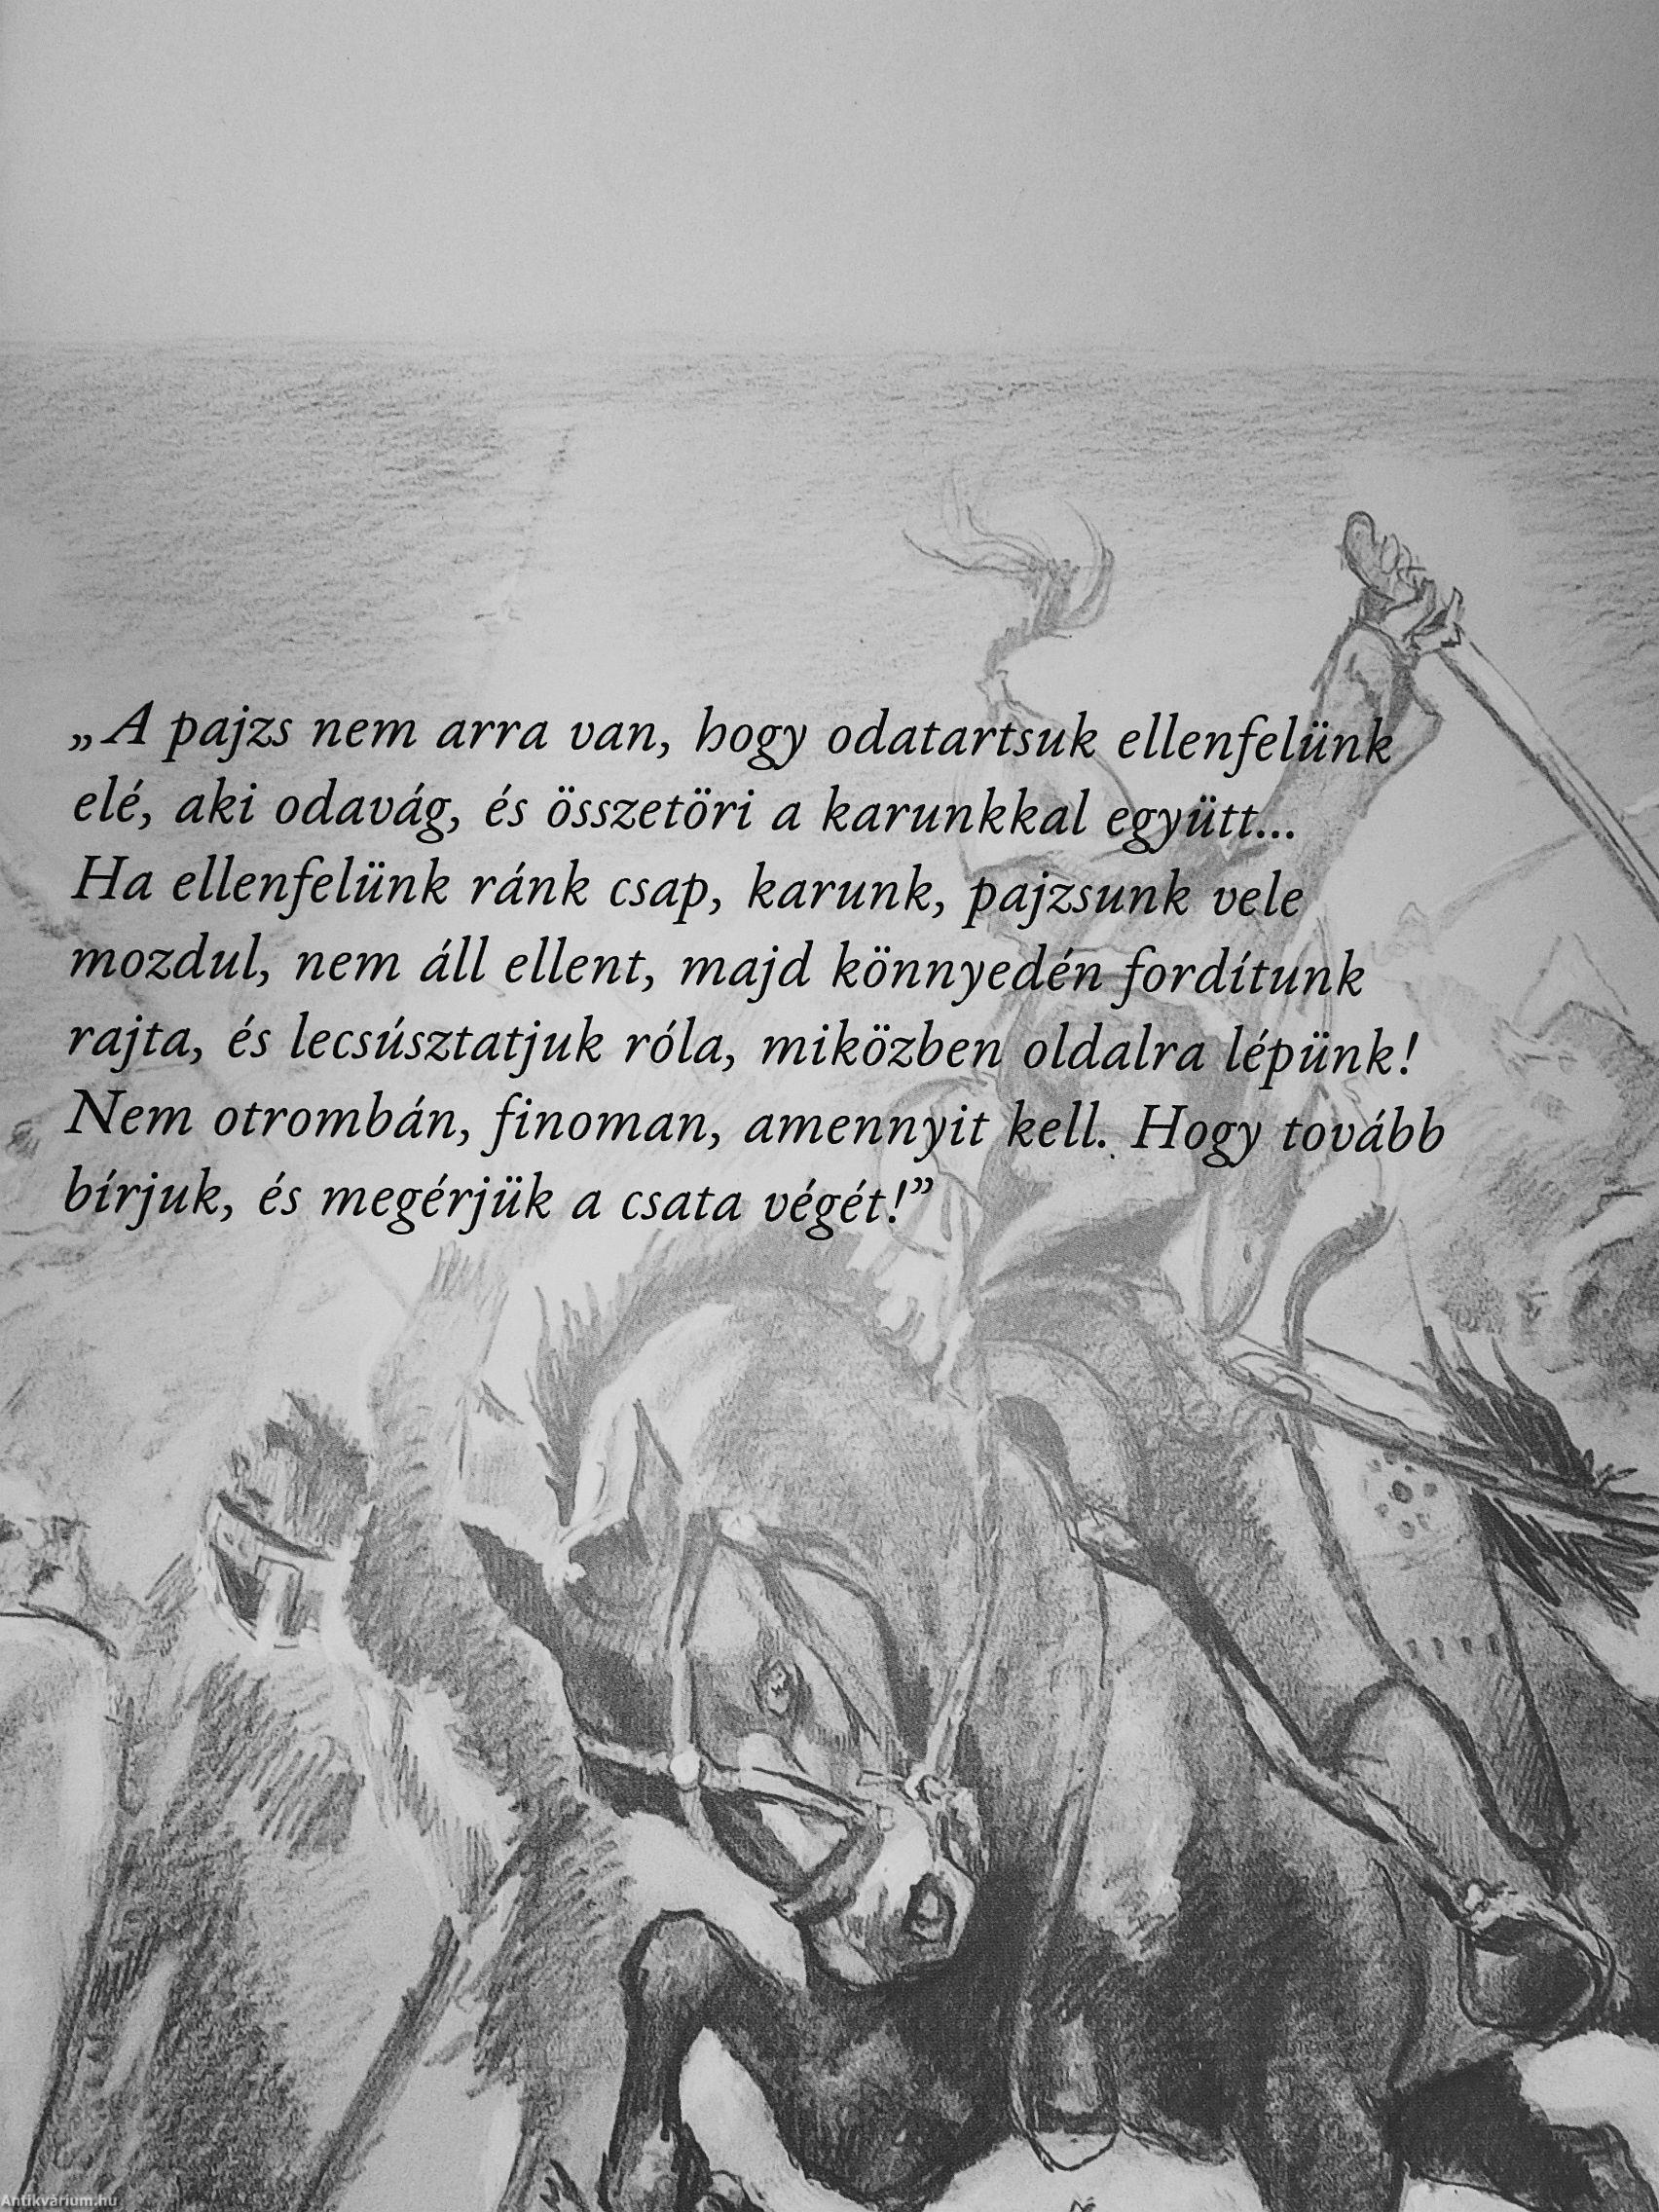 „A pajzs nem arra van, hogy odatartsuk ellenfelünk
elé, aki odavág, és összetöri a karunkkal együtt...
Ha ellenfelünk ránk csap, karunk, pajzsunk vele
mozdul, nem áll ellent, majd könnyedén fordítunk
rajta, és lecsúsztatjuk róla, miközben oldalra lépünk!
Nem otrombán, finoman, amennyit kell. Hogy tovább
bírjuk, és megérjük a csata végét!”
Antikvárium.hu